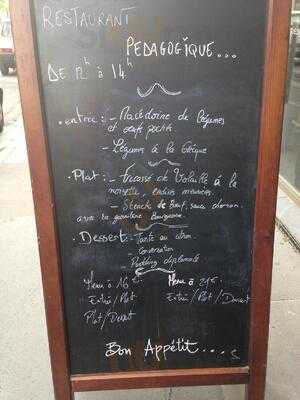 RESTAURANT
PEDAGOGIQUE...
DE 12h à 14h
• entrée : - Macédoine de légumes
et oeufs pochés
- Légumes à la Grèque
• Plat : - Fricassé de Volaille à la
noisette, endives meunières
- Steack de Boeuf, sauce choron.
avec sa garniture Bourgeoise
• Desserts - Tarte au citron.
- Conversation
- Pudding diplomate
Menu à 16 € Menu à 21€
Entrée/Plat Entrée/Plat/Dessert
Plat/Dessert
Bon Appétit....